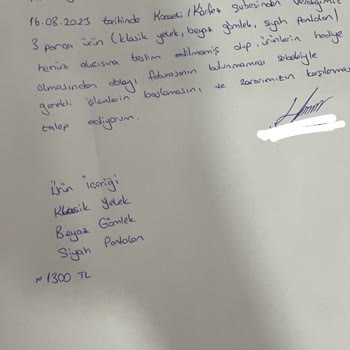 16.08.2023 tarihinde Kocaeli / Körfez şubesinden verdiğimiz
3 parça ürün (klasik yelek, beyaz gömlek, siyah pantolon)
henüz alıcısına teslim edilmemiş olup, ürünlerin hediye
olmasından dolayı faturasının bulunmaması sebebiyle
gerekli işlemlerin başlamasını, ve zararımızın karşılanmasını
talep ediyorum.
Ürün İçeriği
Klasik Yelek
Beyaz Gömlek
Siyah Pantolon
* 1300 TL